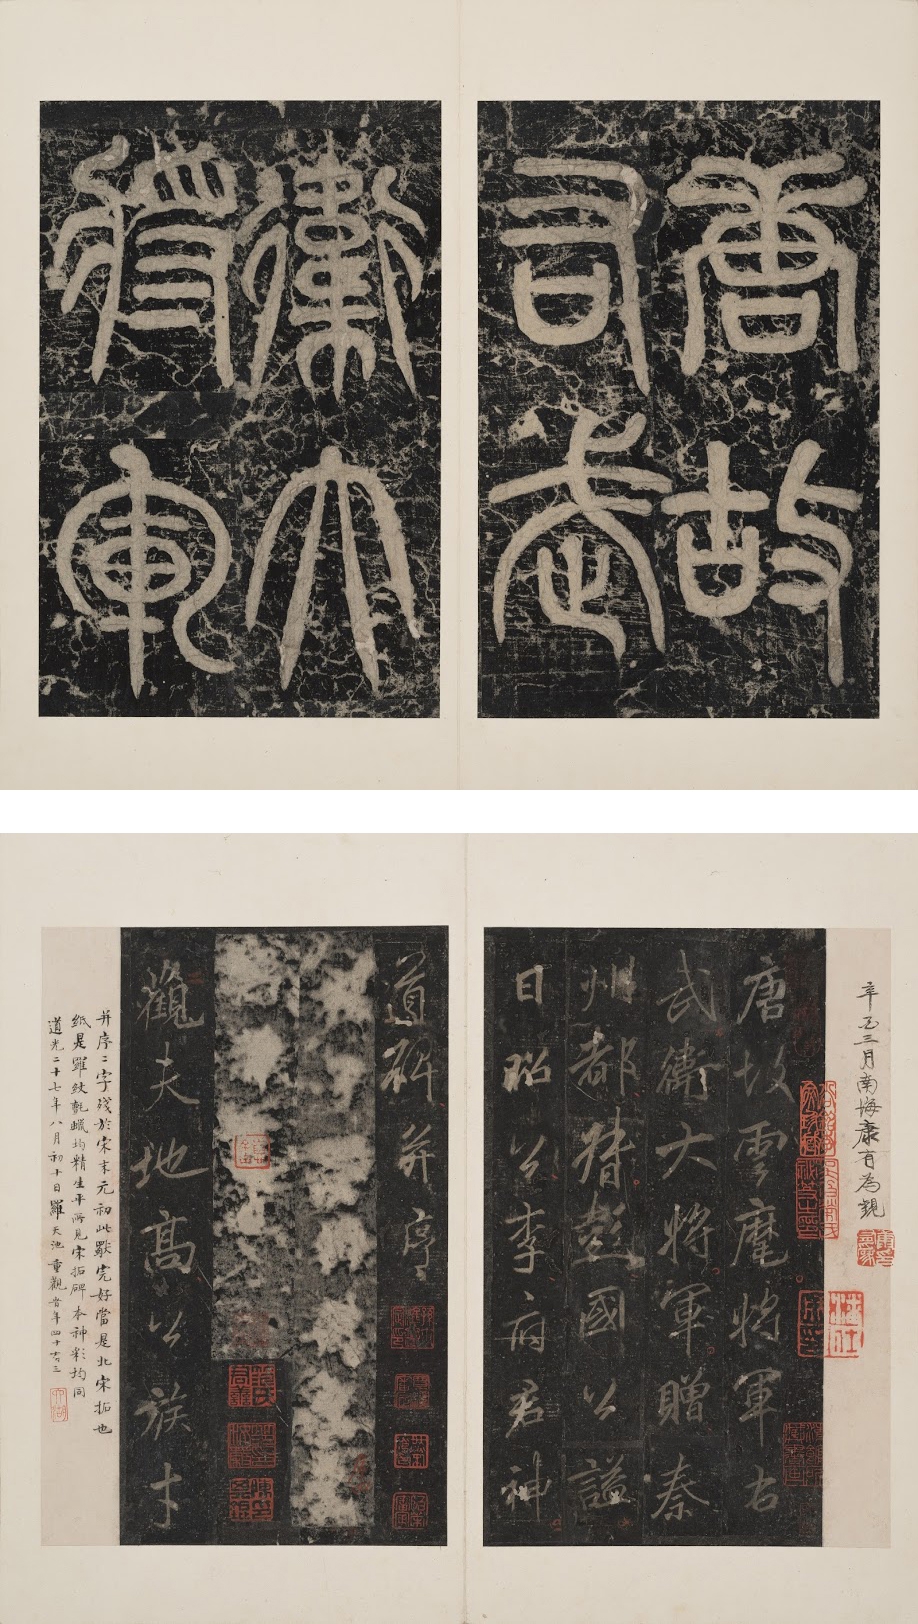 唐故
右武
衛大
將軍
辛酉三月南海康有為觀
唐故雲麾將軍右
武衛大將軍贈秦
州都督彭國公謚
曰昭公李府君神
道碑并序
觀夫地高公族才
并序二字殘於宋末元初此獨完好當是北宋拓也
紙是羅紋氈蠟均精生平所見宋拓碑本神彩均同
道光二十七年八月初十日羅天池重觀旹年四十有三